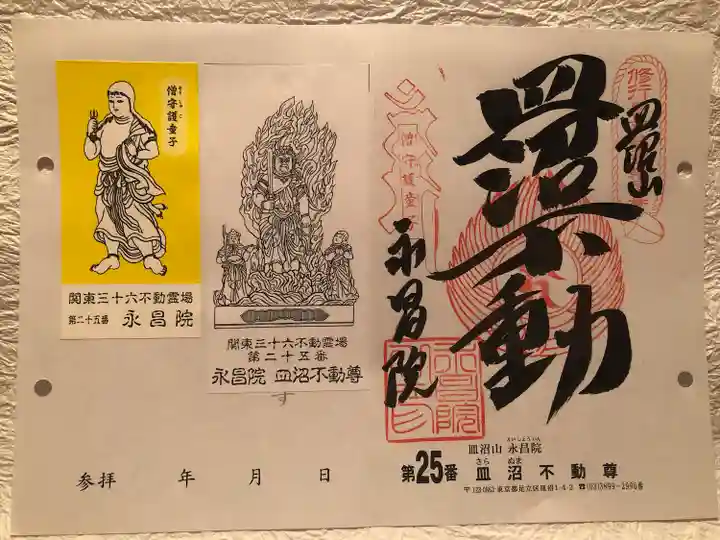 皿沼山
皿沼不動
永昌院
僧守護童子
僧守護童子
関東三十六不動霊場
第二十五番 永昌院
関東三十六不動霊場
第二十五番
永昌院 皿沼不動尊
皿沼山 永昌院
第25番 皿沼不動尊
さら ぬま
東京都足立区皿沼1-4-2
参拝 年 月 日